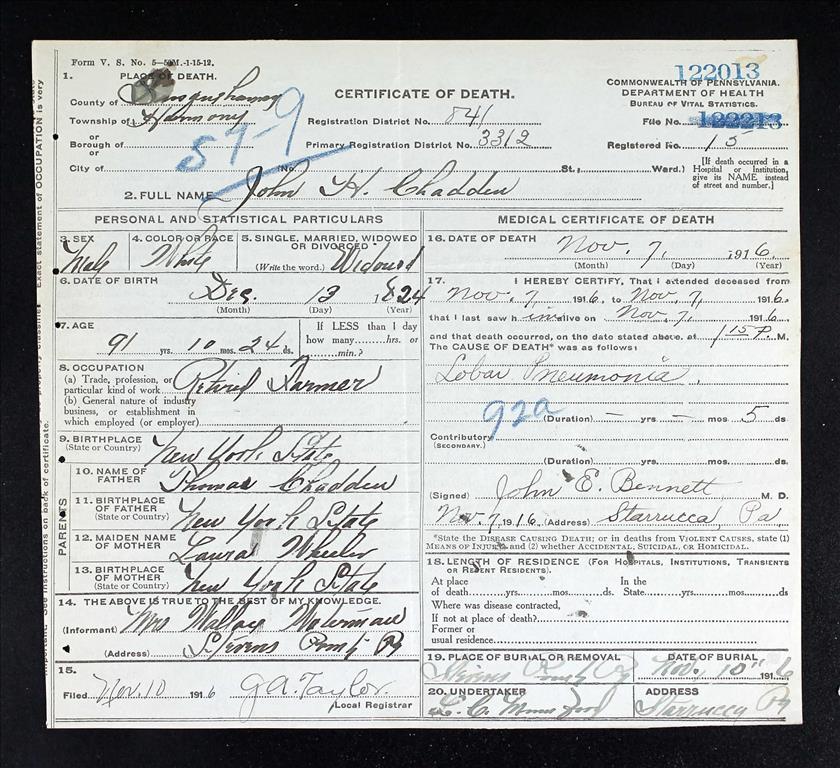 Form V. S. No. 5—50M.-1-15-12.
1. PLACE OF DEATH.
County of Susquehanna
Township of Harmony
or
Borough of
City of
59-9
CERTIFICATE OF DEATH.
Registration District No. 841
Primary Registration District No. 3312
No. St., Ward.)
122013
COMMONWEALTH OF PENNSYLVANIA.
DEPARTMENT OF HEALTH
BUREAU OF VITAL STATISTICS.
File No. 122213
Registered No. 15
[If death occurred in a Hospital or Institution, give its NAME instead of street and number.]
2. FULL NAME John H. Chadden
PERSONAL AND STATISTICAL PARTICULARS
3. SEX
Male
4. COLOR OR RACE
White
5. SINGLE, MARRIED, WIDOWED OR DIVORCED
(Write the word.) Widowed
6. DATE OF BIRTH
Dec. 13 1824
(Month) (Day) (Year)
7. AGE
91 yrs. 10 mos. 24 ds.
If LESS than 1 day
how many hrs. or
min.?
8. OCCUPATION
(a) Trade, profession, or particular kind of work Retired Farmer
(b) General nature of industry business, or establishment in which employed (or employer)
9. BIRTHPLACE
(State or Country) New York State
PARENTS
10. NAME OF FATHER Thomas Chadden
11. BIRTHPLACE OF FATHER
(State or Country) New York State
12. MAIDEN NAME OF MOTHER Laura Wheeler
13. BIRTHPLACE OF MOTHER
(State or Country) New York State
14. THE ABOVE IS TRUE TO THE BEST OF MY KNOWLEDGE.
(Informant) Mrs Wallace Waterman
(Address) Stevens Point Pa
15.
Filed Nov. 10 1916 J A. Taylor.
Local Registrar
MEDICAL CERTIFICATE OF DEATH
16. DATE OF DEATH Nov. 7, 1916.
(Month) (Day) (Year)
17. I HEREBY CERTIFY, That I attended deceased from
Nov. 7 1916, to Nov. 7, 1916.
that I last saw him alive on Nov. 7, 1916
and that death occurred, on the date stated above, at 1 15 P. M.
The CAUSE OF DEATH* was as follows:
Lobar Pneumonia,
92a
(Duration) — yrs — mos 5 ds
Contributory
(SECONDARY.)
(Duration) yrs. mos. ds.
(Signed) John E. Bennett M. D.
Nov. 7, 1916 (Address) Starrucca, Pa,
*State the DISEASE CAUSING DEATH; or in deaths from VIOLENT CAUSES, state (1) MEANS OF INJURY; and (2) whether ACCIDENTAL, SUICIDAL, OR HOMICIDAL.
18. LENGTH OF RESIDENCE (FOR HOSPITALS, INSTITUTIONS, TRANSIENTS OR RECENT RESIDENTS).
At place of death yrs. mos. ds. In the State yrs. mos. ds.
Where was disease contracted,
If not at place of death?
Former or
usual residence
19. PLACE OF BURIAL OR REMOVAL
Stevens Point Pa
DATE OF BURIAL
Nov. 10" 1916
20. UNDERTAKER
ADDRESS
Starrucca Pa
Exact statement of OCCUPATION is very
See instructions on back of certificate.